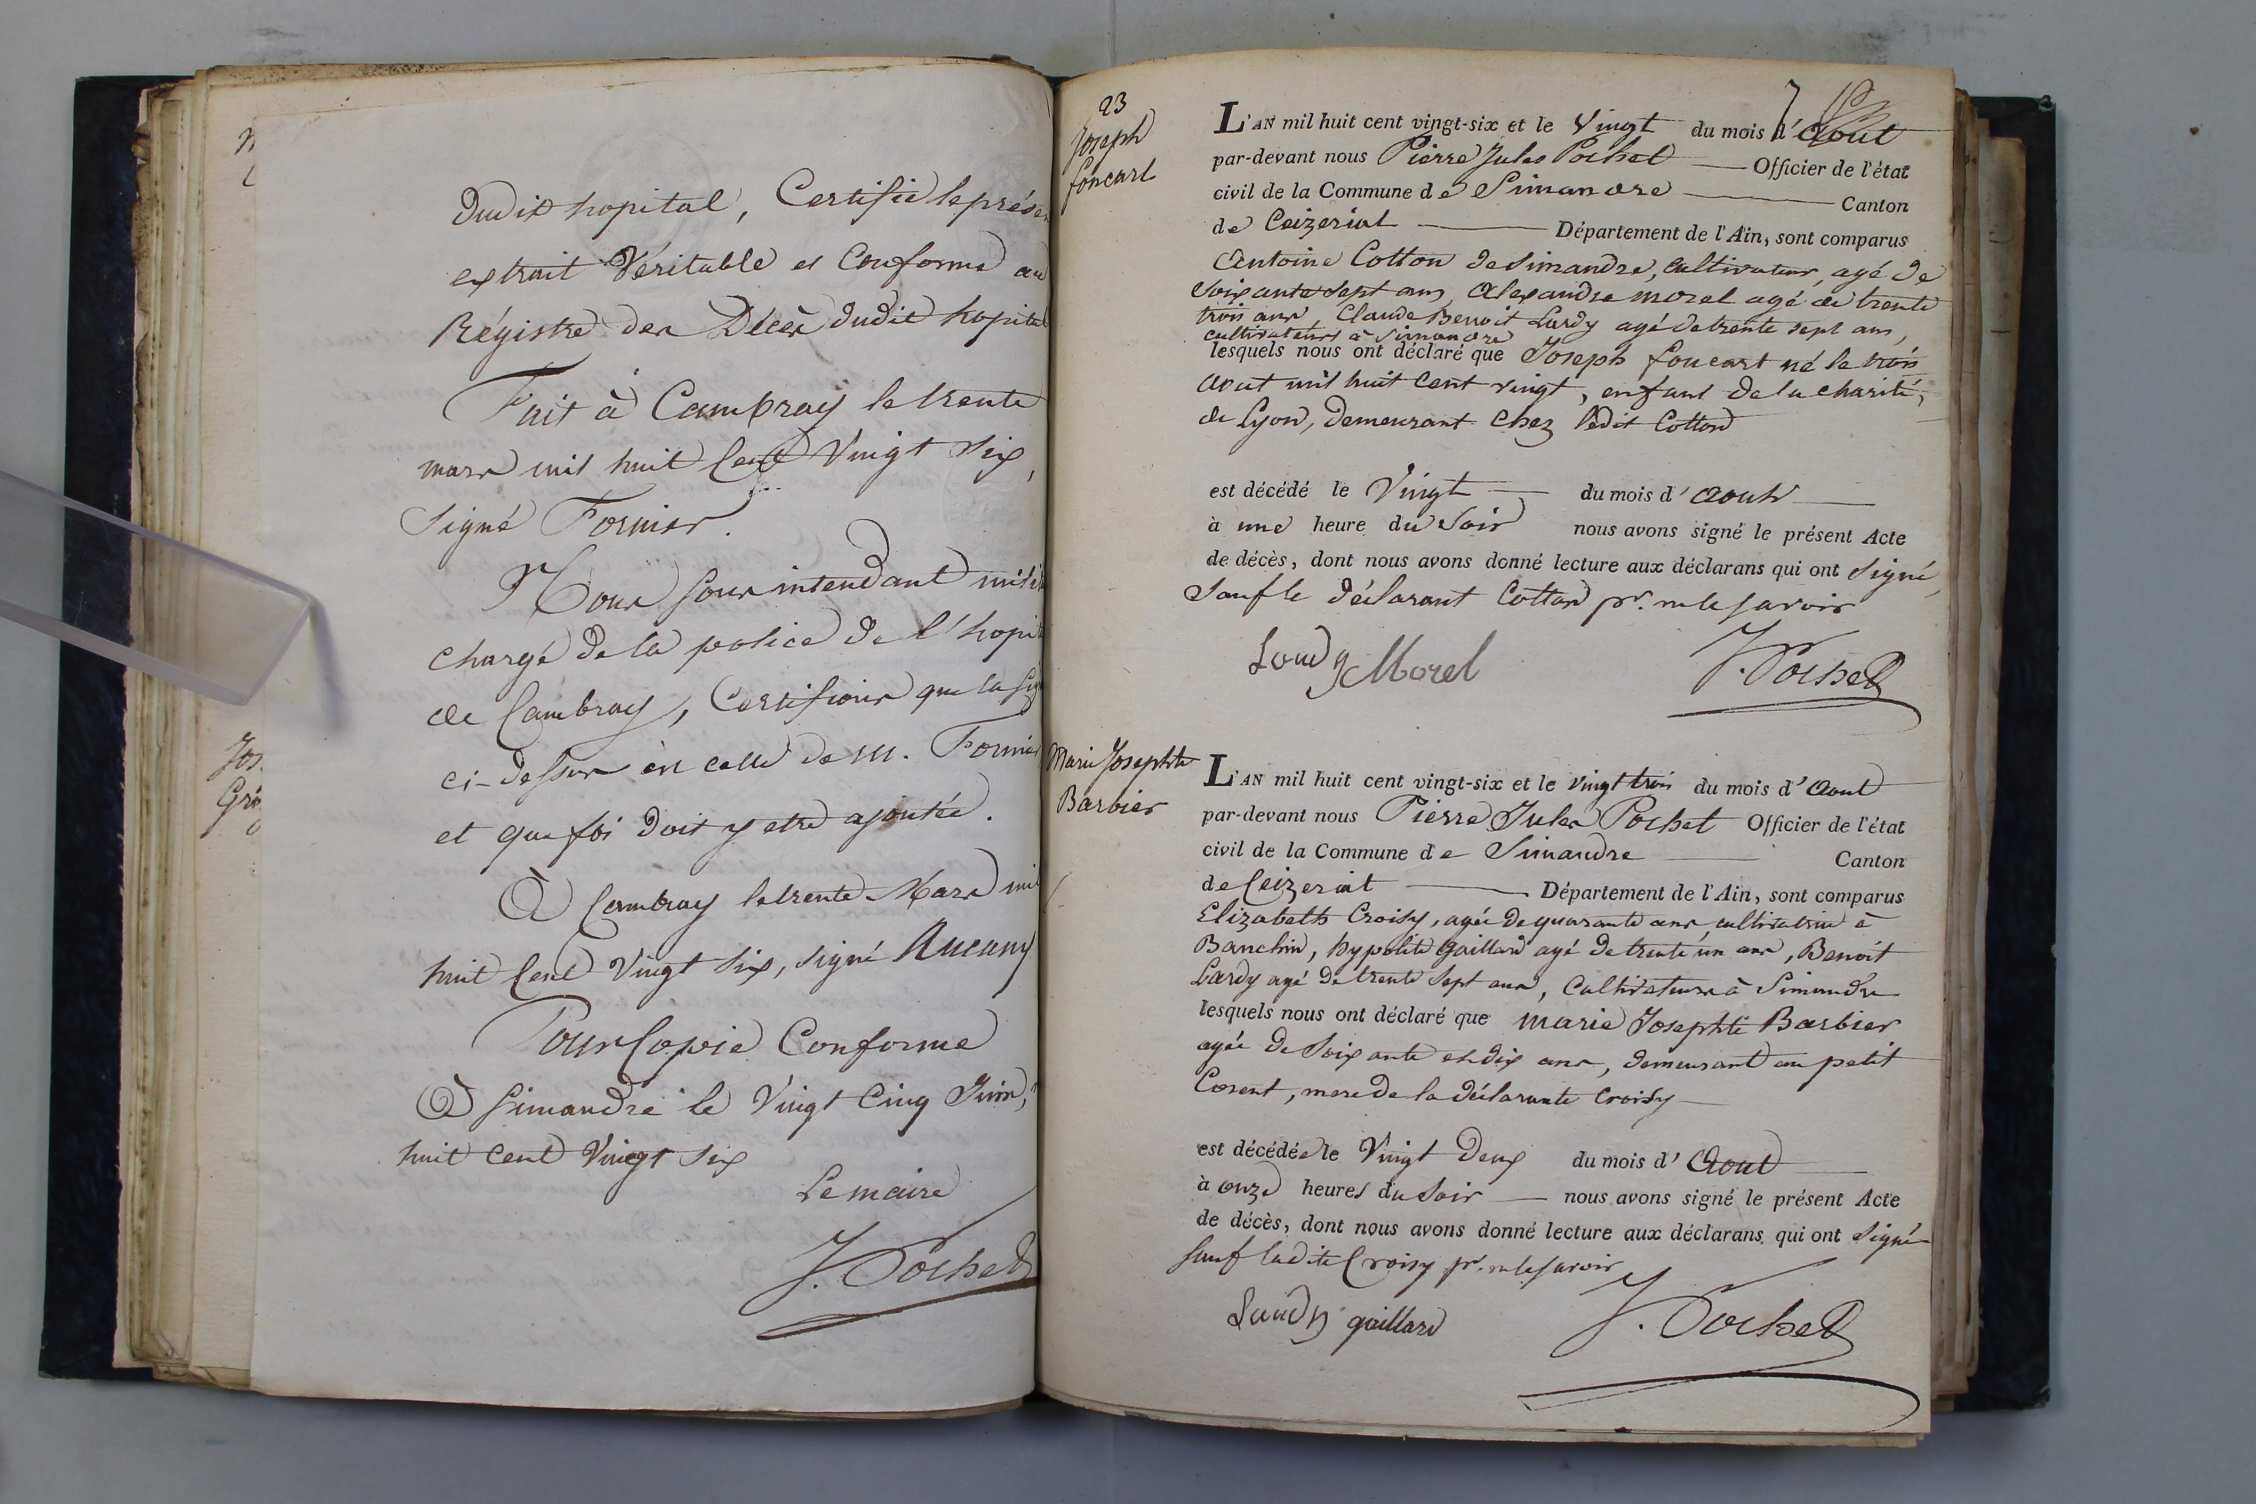 dudit hopital, Certifie le présen
extrait Véritable et Conforme au
Régistre des Décès dudit hopital
Fait à Cambray le trente
mars mil huit Cent Vingt Six,
Signé Fornier.
Nous sous intendant milit
chargé de la police de l'hopit
de Cambray, Certifions que la Sig
ci-dessus est celle de M. Fornier
et que foi doit y etre ajoutée.
À Cambray le trente Mars mil
huit Cent Vingt Six, signé
Pour Copie Conforme
À Simandre le Vingt Cinq Juin,
huit cent Vingt Six
Le maire
J. Pochet
Jos.
Gri
23
Joseph
foucart
L'AN mil huit cent vingt-six et le Vingt du mois d'Aout
par-devant nous Pierre Jules Pochet Officier de l'état
civil de la Commune de Simandre Canton
de Ceizeriat Département de l'Ain, sont comparus
Antoine Cotton de Simandre, cultivateur, agé de
Soixante Sept ans, Alexandre Morel agé de trente
trois ans, Claude Benoit Lardy agé de trente sept ans,
cultivateurs à Simandre
lesquels nous ont déclaré que Joseph foucart né le trois
aout mil huit cent vingt, enfant de la charité,
de Lyon, demeurant chez ledit Cotton
est décédé le Vingt du mois d'Aout
à une heure du Soir nous avons signé le présent Acte
de décès, dont nous avons donné lecture aux déclarans qui ont Signé,
Sauf le déclarant Cotton pr. ne le savoir
Lardy Morel J. Pochet
Marie Josephte
Barbier
L'AN mil huit cent vingt-six et le vingt trois du mois d'Aout
par-devant nous Pierre Jules Pochet Officier de l'état
civil de la Commune de Simandre Canton
de Ceizeriat Département de l'Ain, sont comparus
Elizabeth Croisy, agée de quarante ans, cultivatrice à
Banchin, hypolite Gaillard agé de trente un ans, Benoit
Lardy agé de trente Sept ans, Cultivateurs à Simandre
lesquels nous ont déclaré que marie Josephte Barbier
agée de Soixante et dix ans, demeurant au petit
Corent, mere de la déclarante Croisy
est décédée le Vingt Deux du mois d'Aout
à onze heures du Soir nous avons signé le présent Acte
de décès, dont nous avons donné lecture aux déclarans qui ont Signé
Sauf ladite Croisy pr. ne le savoir
Lardy gaillard J. Pochet